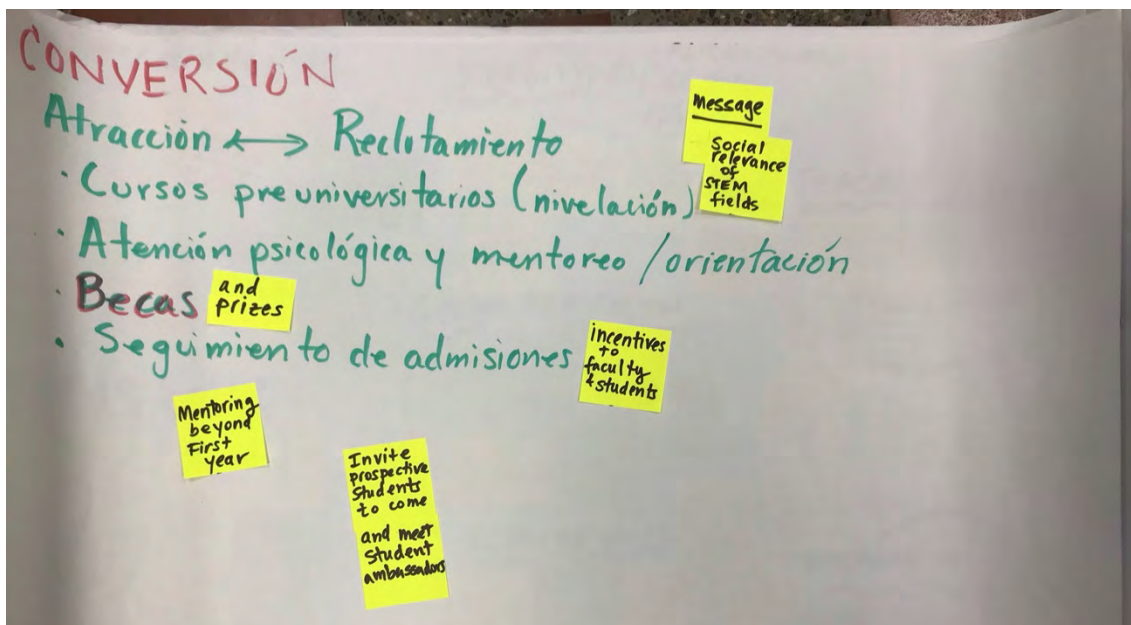 CONVERSIÓN
Atracción ↔ Reclutamiento
Message
Social
relevance
of
STEM
fields
· Cursos preuniversitarios (nivelación)
· Atención psicológica y mentoreo / orientación
· Becas
and
prizes
· Seguimiento de admisiones
incentives
to
faculty
& students
Mentoring
beyond
First
year
Invite
prospective
students
to come
and meet
student
ambassadors